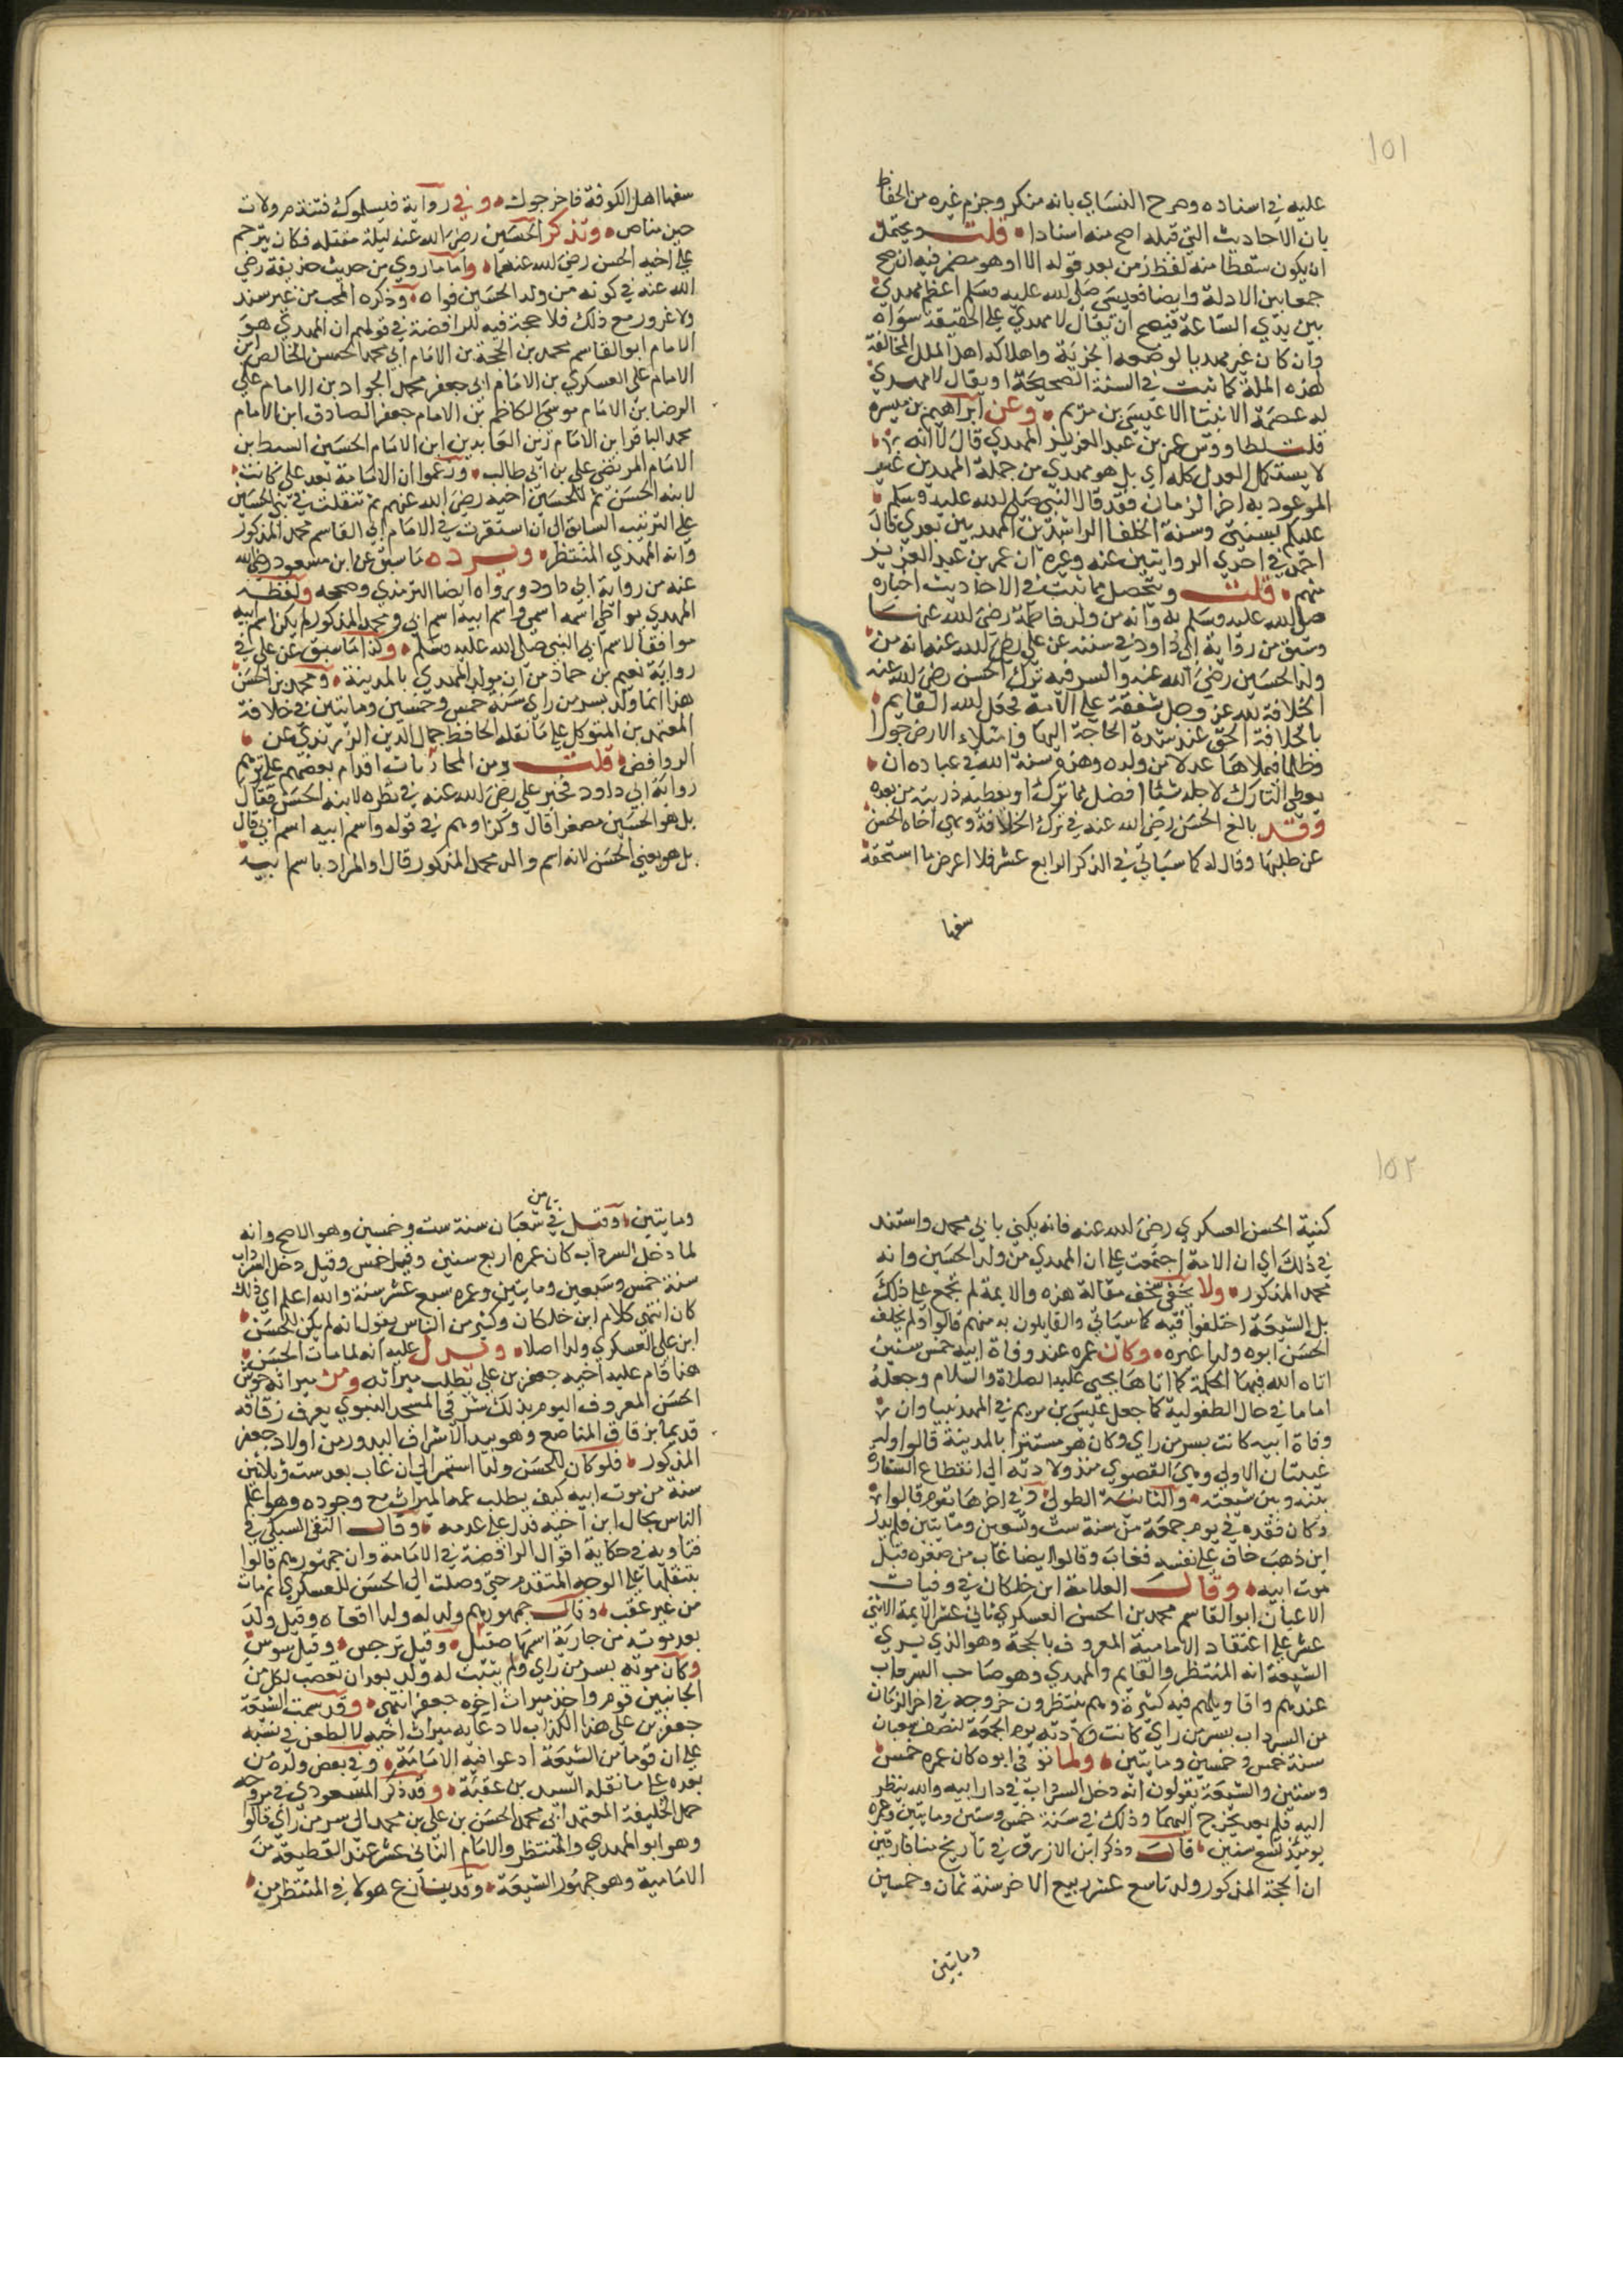 ١٥١
عليه في اسناده وصرح النساي بانه منكر وجزم غيره من الحفاظ
بان الاحاديث التي قبله اصح منه اسنادا قلت ويحتمل
ان يكون سقط منه لفظ زمن بعد قوله الا او هو مضمر فيه ان صح
جمعا بين الادلة وايضا فعيسى صلى الله عليه وسلم اعظم مهدي
بين يدي الساعة فيصح ان يقال لا مهدي على الحقيقة سواه
وان كان غيره مهديا لوضعه الجزية واهلاكه اهل الملل المخالفة
لهذه الملة كما ثبت في السنة الصحيحة او يقال لا مهدي
له عصمة الانبيا الا عيسى بن مريم وعن ابراهيم بن ميسرة
قلت لطاووس عمر بن عبد العزيز المهدي قال لا انه
لا يستكمل العدل كله اي بل هو مهدي من جملة المهديين غير
الموعود به اخر الزمان فقد قال النبي صلى الله عليه وسلم
عليكم بسنتي وسنة الخلفا الراشدين المهديين بعدي قال
احمد في احدي الروايتين عنه وغيره ان عمر بن عبد العزيز
منهم قلت وتحصل مما ثبت في الاحاديث اخباره
صلى الله عليه وسلم به وانه من ولد فاطمة رضي الله عنها
وسبق من رواية ابي داود في سننه عن علي رضي الله عنه انه من
ولد الحسين رضي الله عنه والسر فيه ترك الحسن رضي الله عنه
الخلافة لله عز وجل شفقة على الامة فجعل الله القايم
بالخلافة الحق عند شدة الحاجة اليها وامتلاء الارض جورا
وظلما فيملاها عدلا من ولده وهذه سنة الله في عباده ان
يعطي التارك لاجله شيئا افضل مما ترك او يعطيه ذريته من بعده
وقد بالغ الحسن رضي الله عنه في ترك الخلافة ونهى اخاه الحسين
عن طلبها وقال له كما سياتي في الذكر الرابع عشر فلا اعرض ما استخفه
سفها
سفها اهل الكوفة فاخرجوك وفي رواية فيسلموك فتندم ولات
حين مناص وتذكر الحسين رضي الله عنه ليلة مقتله فكان يترحم
على اخيه الحسن رضي الله عنهما واما ما روي من حديث حذيفة رضي
الله عنه في كونه من ولد الحسين فواه وذكره المحب من غير سند
ولا غرور مع ذلك فلا حجة فيه للرافضة في قولهم ان المهدي هو
الامام ابو القاسم محمد بن الحجة بن الامام ابي محمد الحسن الخالص ابن
الامام علي العسكري بن الامام ابي جعفر محمد الجواد بن الامام علي
الرضا بن الامام موسى الكاظم بن الامام جعفر الصادق ابن الامام
محمد الباقر ابن الامام زين العابدين ابن الامام الحسين السبط بن
الامام المرتضى علي بن ابي طالب وزعموا ان الامامة بعد علي كانت
لابنه الحسن ثم للحسين اخيه رضي الله عنهم ثم تنقلت في بني الحسين
على الترتيب السابق الى ان استقرت في الامام ابي القاسم محمد المذكور
وانه المهدي المنتظر ويرده ما سبق عن ابن مسعود رضي الله
عنه من رواية ابي داود ورواه ايضا الترمذي وصححه ولفظه
المهدي يواطي اسمه اسمي واسم ابيه اسم ابي ومحمد المذكور لم يكن اسم ابيه
موافقا لاسم ابي النبي صلى الله عليه وسلم وكذا ما سبق عن علي في
رواية نعيم بن حماد من ان مولد المهدي بالمدينة ومحمد بن الحسن
هذا انما ولد بسر من راي سنة خمس وخمسين ومايتين في خلافة
المعتمد بن المتوكل على ما نقله الحافظ جمال الدين الزرندي عن
الروافض قلت ومن المجازفات اقدام بعضهم على توهيم
رواية ابي داود بخبر علي رضي الله عنه في نظره لابنه الحسن فقال
بل هو الحسين مصغرا قال وكذا وهم في قوله واسم ابيه اسم ابي قال
بل هو يعني الحسن لانه اسم والد محمد المذكور قال او المراد باسم ابيه
١٥٢
كنية الحسن العسكري رضي الله عنه فانه يكنى بابي محمد واستند
في ذلك اي ان الامة اجتمعت على ان المهدي من ولد الحسين وانه
محمد المذكور ولا يخفى سخف مقالة هذه والايمة لم تجمع على ذلك
بل الشيعة اختلفوا فيه كما سياتي والقايلون به منهم قالوا ولم يخلف
الحسن ابوه ولدا غيره وكان عمره عند وفاة ابيه خمس سنين
اتاه الله فيها الحكمة كما اتاها يحيى عليه الصلاة والسلام وجعله
اماما في حال الطفولية كما جعل عيسى بن مريم في المهد نبيا وان
وفاة ابيه كانت بسر من راي وكان هو مستترا بالمدينة قالوا وله
غيبتان الاولى وهي القصوى منذ ولادته الى انقطاع السفارة
بينه وبين شيعته والثانية الطولى وفي اخرها يقوم قالوا
وكان فقده في يوم جمعة من سنة ست وتسعين ومايتين فلم يدر
اين ذهب خاف على نفسه فغاب وقالوا ايضا غاب من صغره قبل
موت ابيه وقال العلامة ابن خلكان في وفيات
الاعيان ابو القاسم محمد بن الحسن العسكري ثاني عشر الايمة الاثني
عشر على اعتقاد الامامية المعروف بالحجة وهو الذي يري
الشيعة انه المنتظر والقايم والمهدي وهو صاحب السرداب
عندهم واقاويلهم فيه كثيرة وهم ينتظرون خروجه في اخر الزمان
من السرداب بسر من راي كانت ولادته يوم الجمعة لنصف شعبان
سنة خمس وخمسين ومايتين ولما توفي ابوه كان عمره خمس
وستين والشيعة يقولون انه دخل السرداب في دار ابيه والله ينظر
اليه فلم يعد يخرج اليهما وذلك في سنة خمس وستين ومايتين وعمره
يوميذ تسع سنين قال وذكر ابن الازرق في تاريخ ميافارقين
ان الحجة المذكور ولد تاسع عشر ربيع الاخر سنة ثمان وخمسين
ومايتين
ومايتين وقيل في ثامن شعبان سنة ست وخمسين وهو الاصح وانه
لما دخل السرداب كان عمره اربع سنين وقيل خمس وقيل دخل السرداب
سنة خمس وسبعين ومايتين وعمره سبع عشر سنة والله اعلم اي ذلك
كان انتهى كلام ابن خلكان وكثير من الناس يقول انه لم يكن للحسن
ابن علي العسكري ولد اصلا ويدل عليه انه لما مات الحسن
هذا قام عليه اخيه جعفر بن علي بطلب ميراثه ومن ميراثه حوش
الحسن المعروف اليوم بذلك شرقي المسجد النبوي يعرف زقاقه
قديما بزقاق المناصع وهو بيد الاشراف البدور من اولاد جعفر
المذكور فلو كان للحسن ولدا استمر الى ان غاب بعد ست وثلاثين
سنة من موت ابيه كيف يطلب عمه الميراث مع وجوده وهو اعلم
الناس بحال ابن اخيه فدل على عدمه وقال التقي السبكي في
فتاويه في حكاية اقوال الرافضة في الامامة وان جمهورهم قالوا
بتنقلها على الوجه المتقدم حتى وصلت الى الحسن العسكري ثم مات
من غير عقب وقال جمهورهم ولد له ولدا اخفاه وقيل ولد
بعد موته من جارية اسمها صقيل وقيل نرجس وقيل سوس
وكان موته بسر من راي ولم يثبت له ولد بعد ان تعصب لكل من
الجانبين قوم واخذ ميراث اخوه جعفر انتهى وقد سمت الشيعة
جعفر بن علي هذا الكذاب لادعايه ميراث اخيه لا لطعن في نسبه
على ان قوما من الشيعة ادعوا فيه الامامة وفي بعض ولده من
بعده على ما نقله السيد بن عقبة وقد ذكر المسعودي في مروجه
حمل الخليفة المعتمد ابي محمد الحسن بن علي بن محمد الى سر من راي قالوا
وهو ابو المهدي والمنتظر والامام الثاني عشر عند القطيعة من
الامامية وهو جمهور الشيعة وقد ينازع هولا في المنتظر من